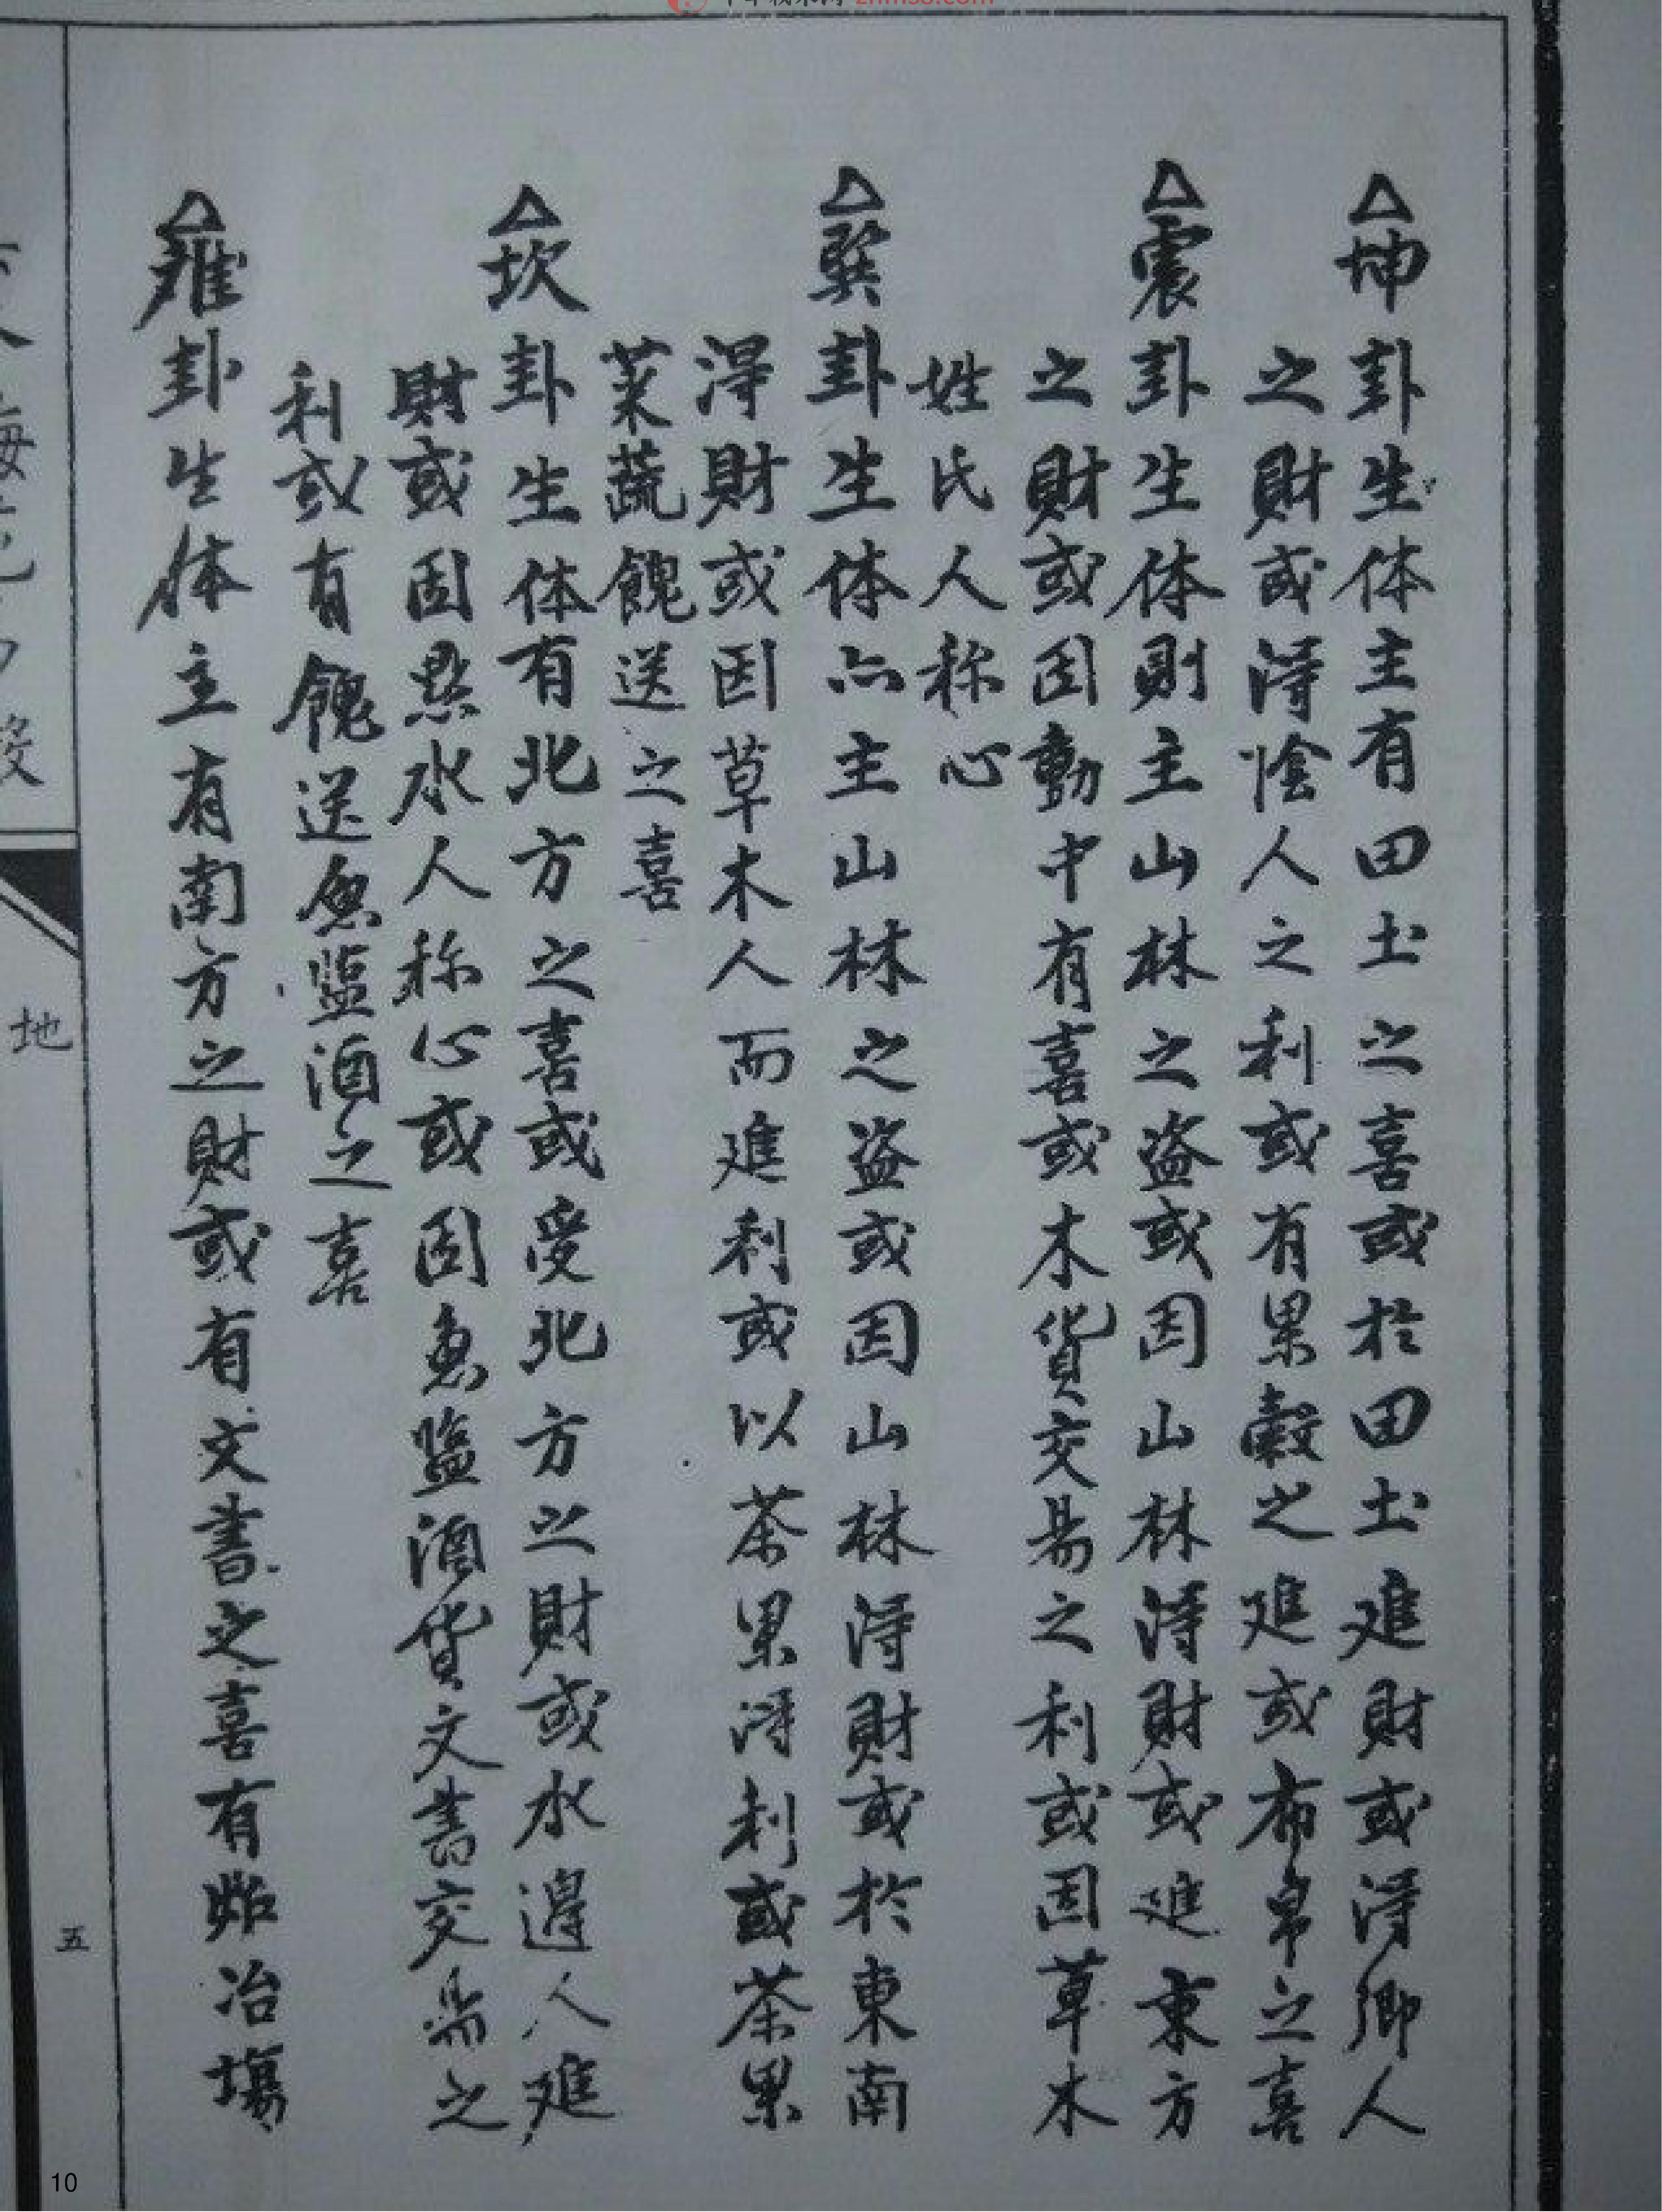 △坤卦生体主有田土之喜或於田土进財或淂鄉人
之財或淂隂人之利或有果穀之进或布帛之喜
△震卦生体則主山林之盗或因山林淂財或进東方
之財或因動中有喜或木貨交易之利或因草木
姓氏人称心
△巽卦生体亦主山林之盗或因山林淂財或於東南
淂財或因草木人而进利或以茶果淂利或茶果
菜蔬餽送之喜
△坎卦生体有北方之喜或受北方之財或水邉人进
財或因點水人称心或因魚盐酒貨文書交易之
利或有餽送魚盐酒之喜
△離卦生体主有南方之財或有文書之喜有炉冶塲
地
五
10
znm58.com